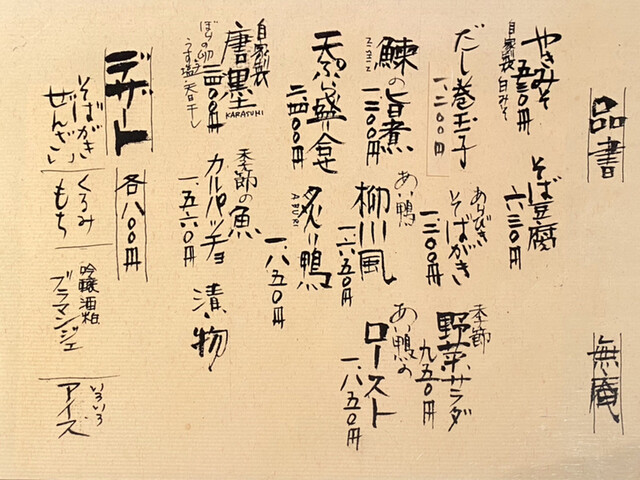 品書
無庵
やきみそ
自家製白みそ
五三〇円
そば豆腐
六三〇円
だし巻玉子
一、二〇〇円
あらびき
そばがき
一、二〇〇円
季節
野菜サラダ
九五〇円
鰊の旨煮
ニシン
一、二〇〇円
あい鴨
柳川風
一、六五〇円
あい鴨の
ロースト
一、八五〇円
天ぷら盛合せ
二、四〇〇円
炙り鴨
ABURI
一、八五〇円
自家製
唐墨
KARASUMI
ぼらの卵
うす塩・天日干し
季節の魚
カルパッチョ
一、五六〇円
漬け物
デザート
各八〇〇円
そばがき
ぜんざい
くるみ
もち
吟醸酒粕
ブラマンジェ
いろいろ
アイス